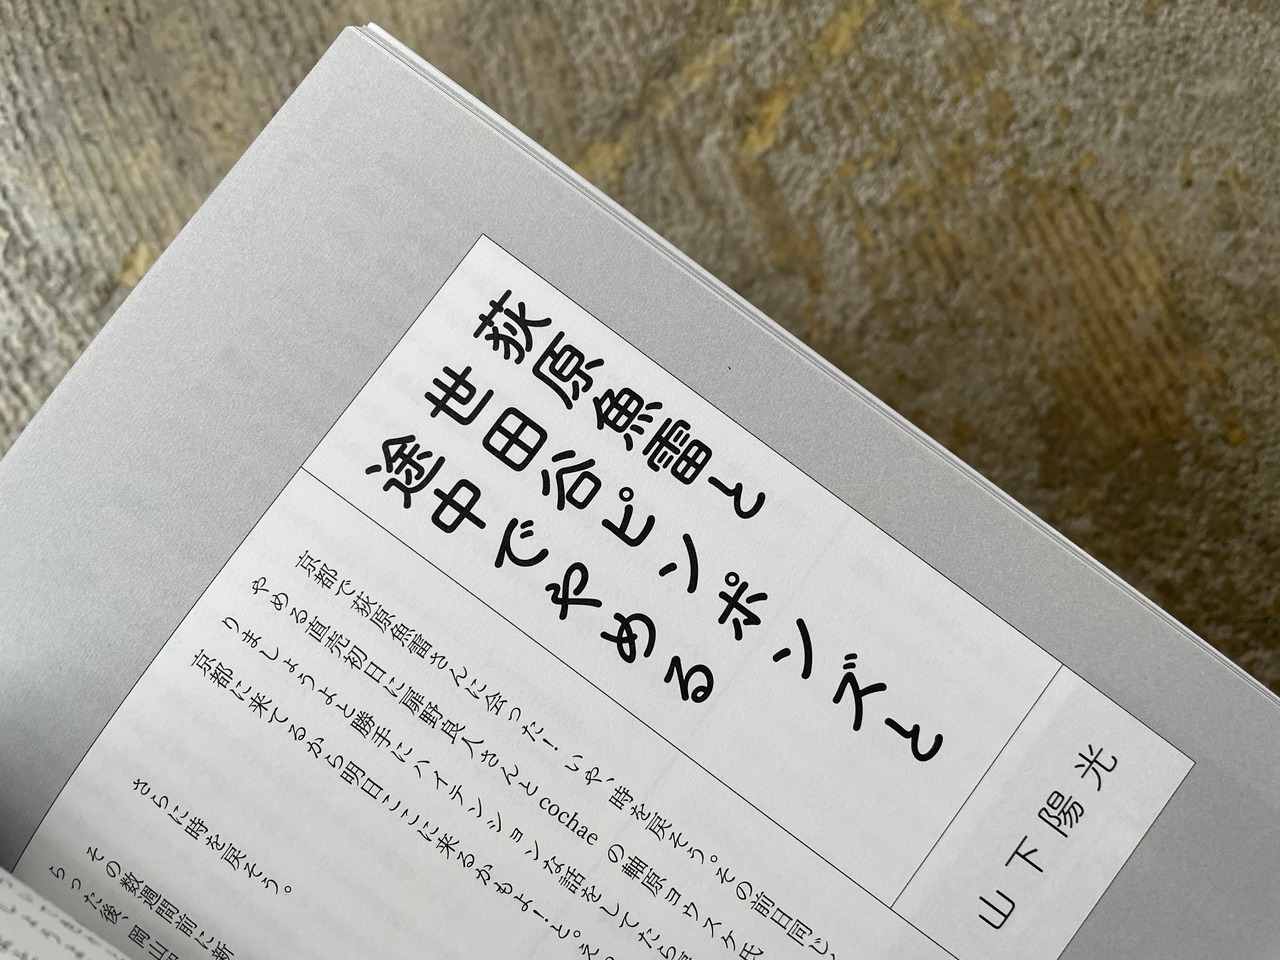 荻原魚雷と
世田谷ピンポンズと
途中でやめる
山下陽光
京都で荻原魚雷さんに会った！ いや、時を戻そう。その前日同じ、
やめる直売初日に扉野良人さんと cochae の軸原ヨウスケ氏
りましょうよと勝手にハイテンションな話をしてたら
京都に来てるから明日ここに来るかもよー！と。さら
さらに時を戻そう。
その数週間前に新
らった後、岡山